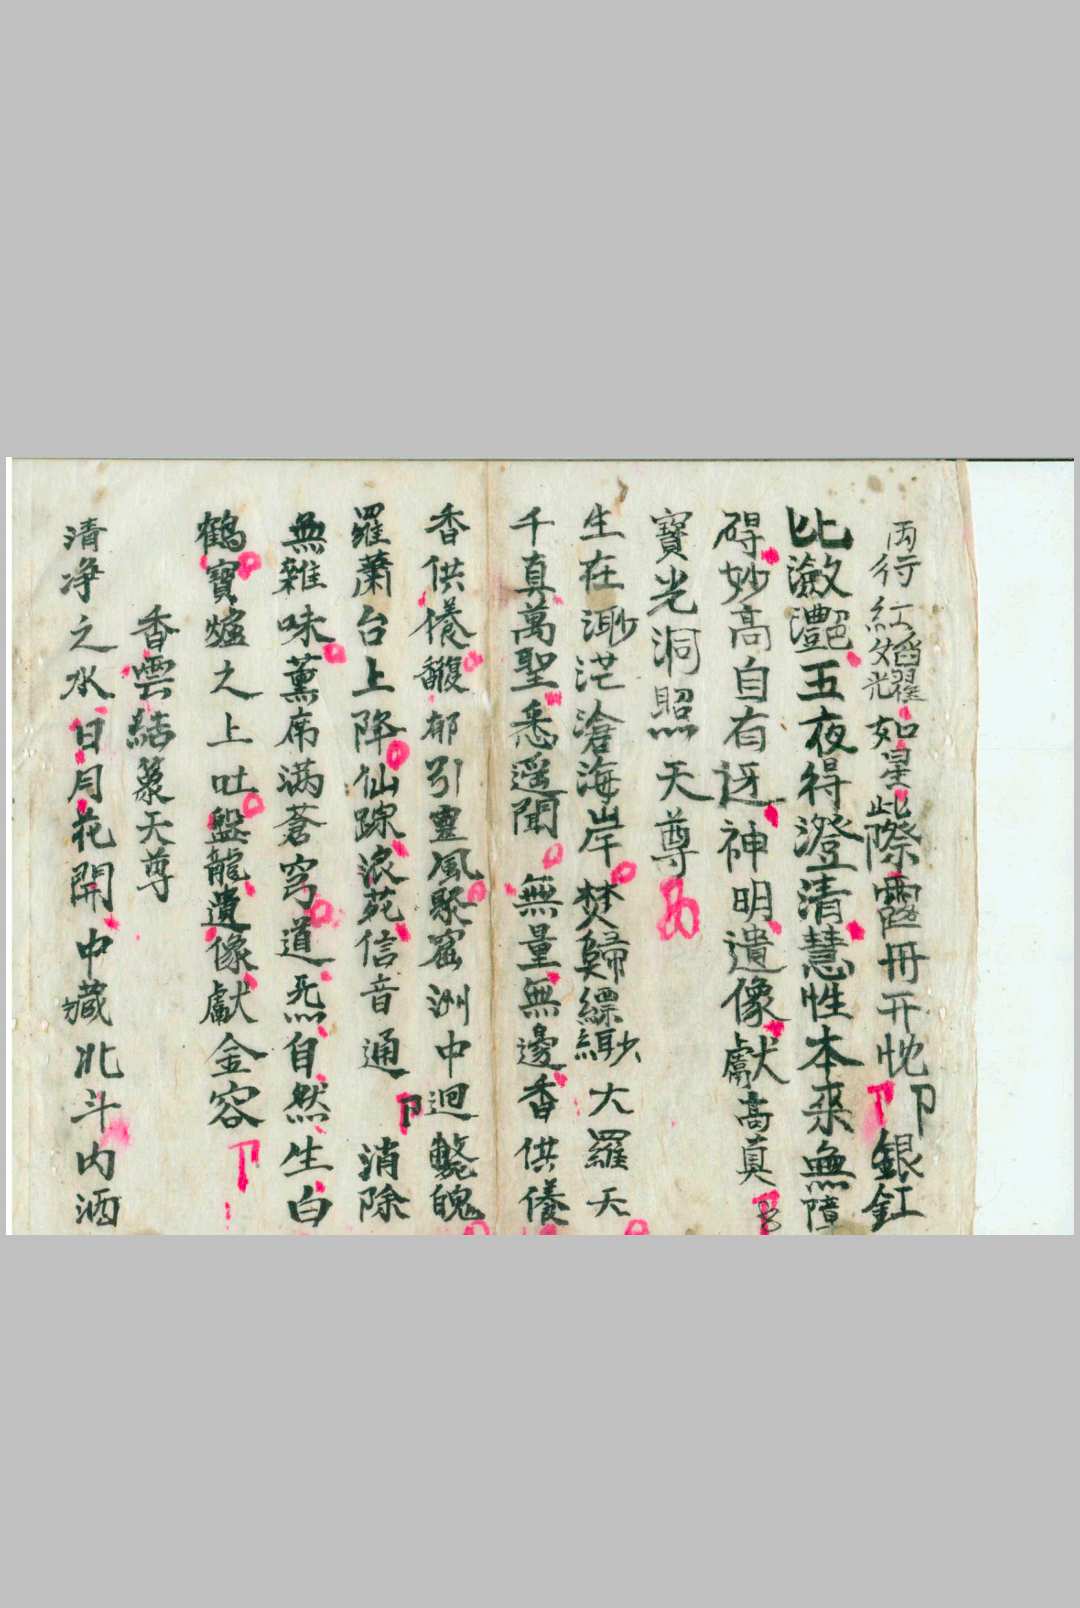 两行紅焰耀如星此際霞冊开忱卩銀釭
比瀲灔五夜得澄清慧性本来無障
碍妙高自有迓神明遺像獻高真
寶光洞照天尊
生在渺茫滄海岸焚歸縹緲大羅天
千真萬聖悉遥聞無量無邊香供養
香供養馥郁引靈風聚窟洲中迴魄
羅蕭台上降仙踪浪苑信音通卩消除
無雜味薰席满蒼穹道炁自然生白
鶴寶爐之上吐盤龍遺像獻金容
香雲結篆天尊
清净之水日月花開中藏北斗内洒